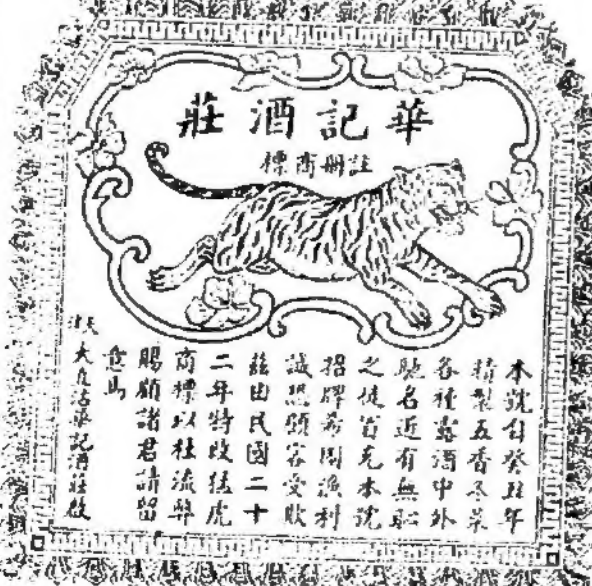 華記酒莊
註册商標
本號自癸丑年
精製五香冬菜
各種露酒中外
馳名近有無恥
之徒冒充本號
招牌希圖漁利
誠恐顧客受欺
茲由民國二十
二年特改猛虎
商標以杜流弊
賜顧諸君請留
意焉
天津大直沽華記酒莊啟